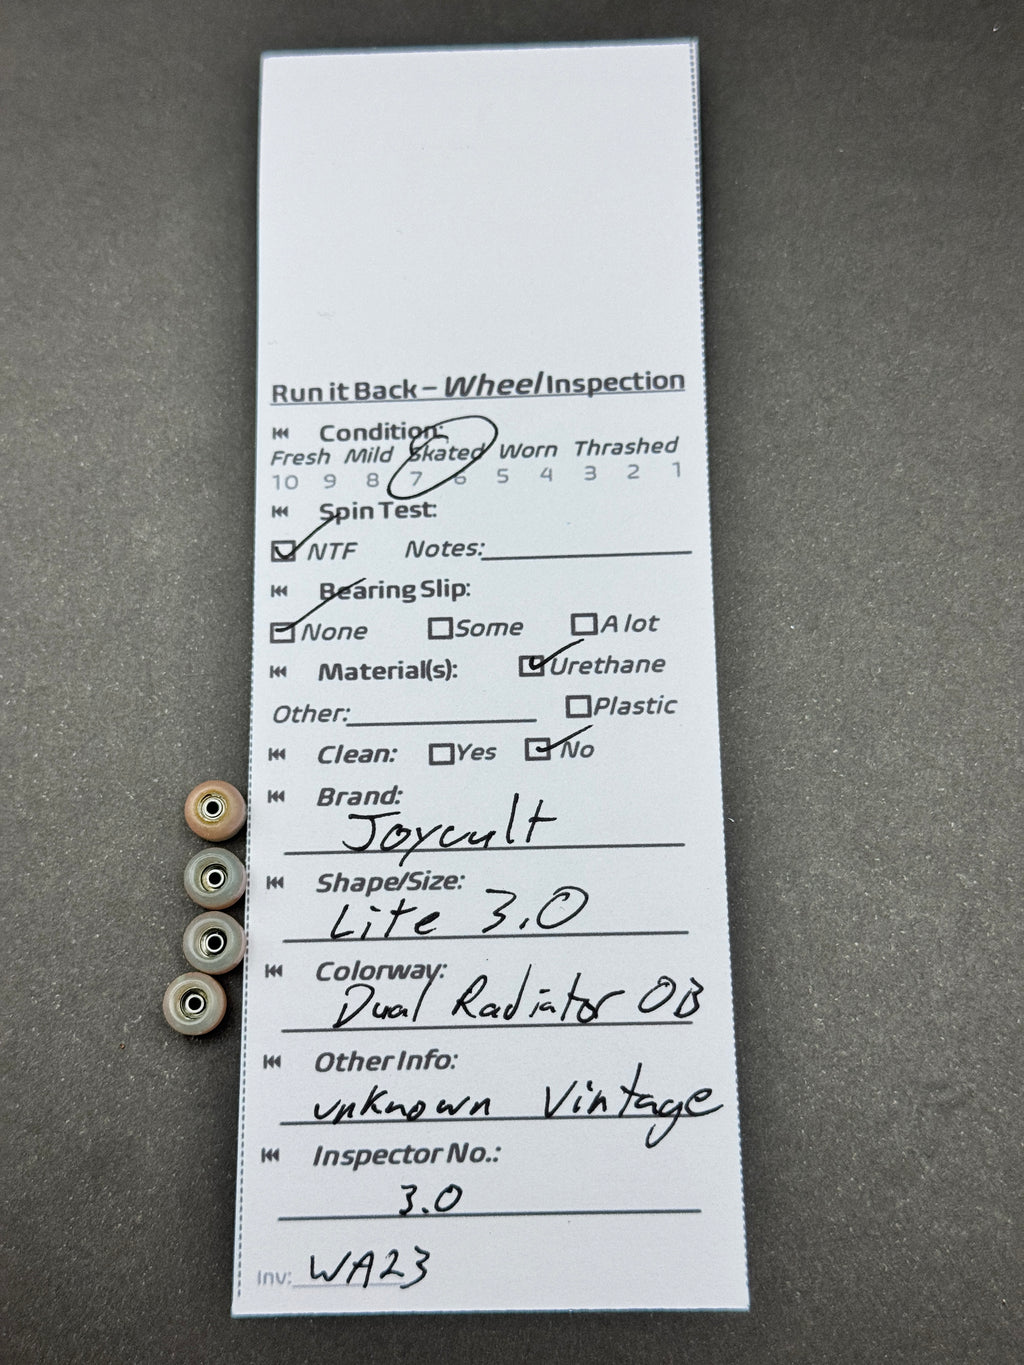 Run it Back – Wheel Inspection
Condition:
Fresh Mild Skated Worn Thrashed
10 9 8 7 6 5 4 3 2 1
Spin Test:
NTF Notes:
Bearing Slip:
None Some A lot
Material(s): Urethane
Other: Plastic
Clean: Yes No
Brand:
Joycult
Shape/Size:
Lite 3.0
Colorway:
Dual Radiator OB
Other Info:
unknown Vintage
Inspector No.:
3.0
Inv: WA23